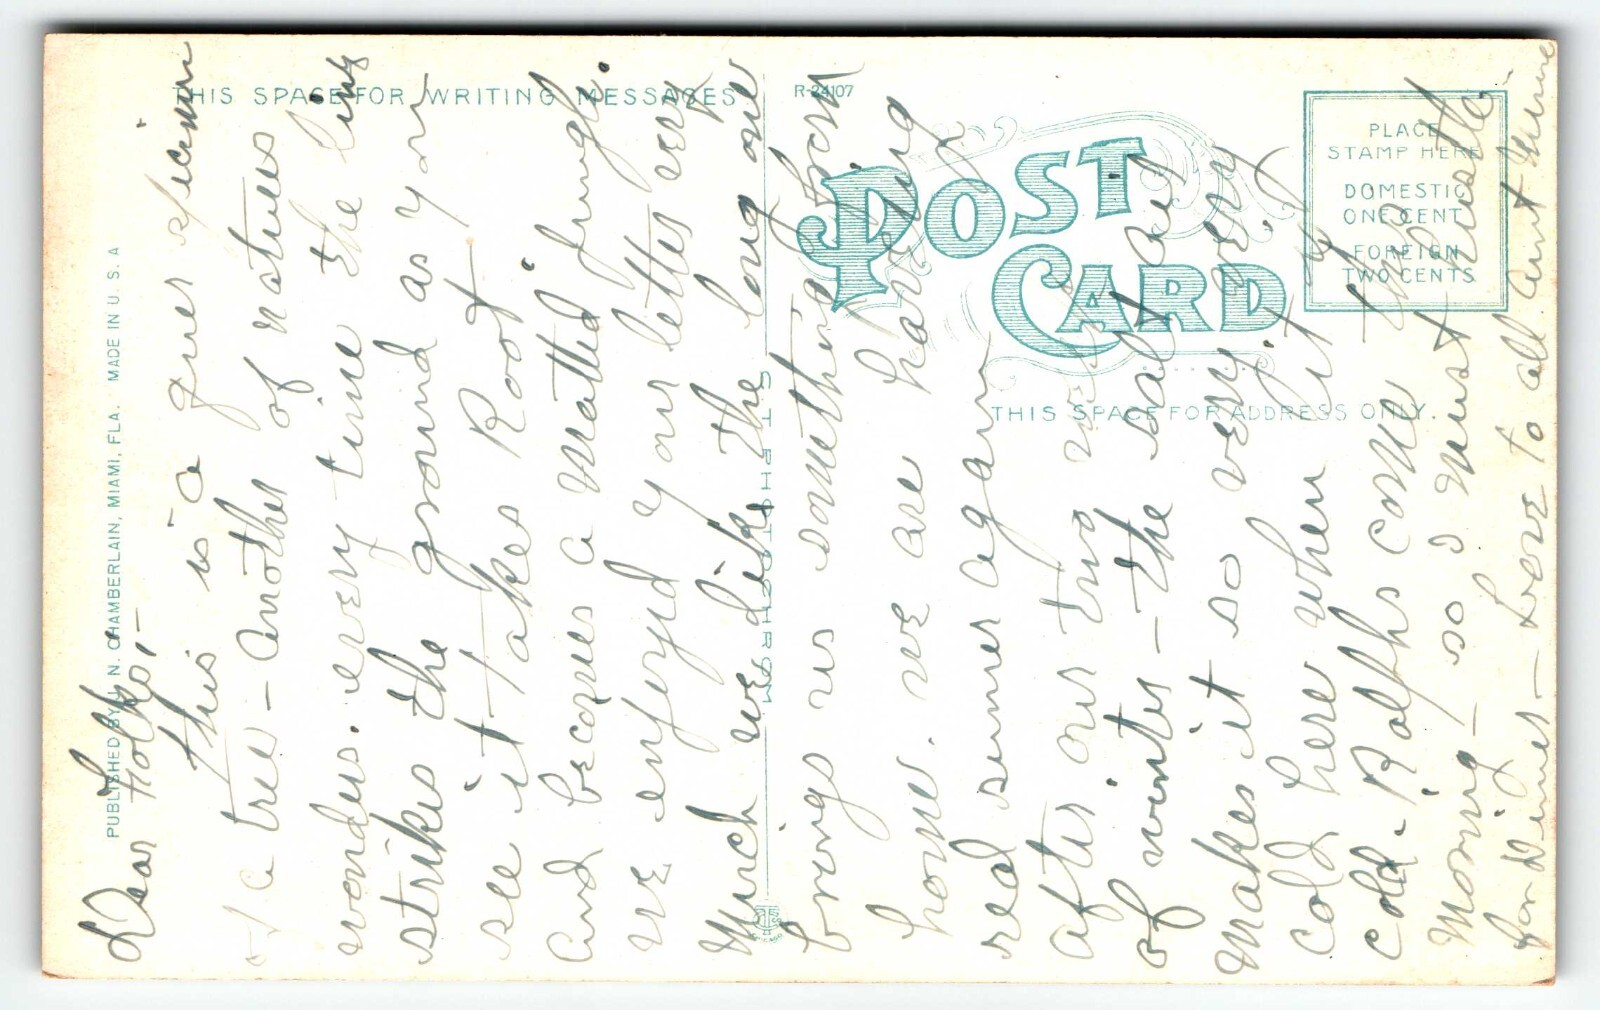 THIS SPACE FOR WRITING MESSAGES
R-24107
POST
CARD
PLACE
STAMP HERE
DOMESTIC
ONE CENT
FOREIGN
TWO CENTS
THIS SPACE FOR ADDRESS ONLY.
PUBLISHED BY J. N. CHAMBERLAIN, MIAMI, FLA. MADE IN U. S. A
CHICAGO
Dear Folks,-
this is a quer specimen
of a tree - another of natures
wonders. every time the limb
strikes the ground as you
see it takes Root.
and becomes a matted jungle.
we enjoyed your letter very
much we like the long one
brings us something from
home. we are having
real sumer again
after our two weeks
of winter - the salt air
makes it so very very
cold here when it is
cold. Ralphs come this
morning - so I must hustle -
for diner - Love to all Aunt